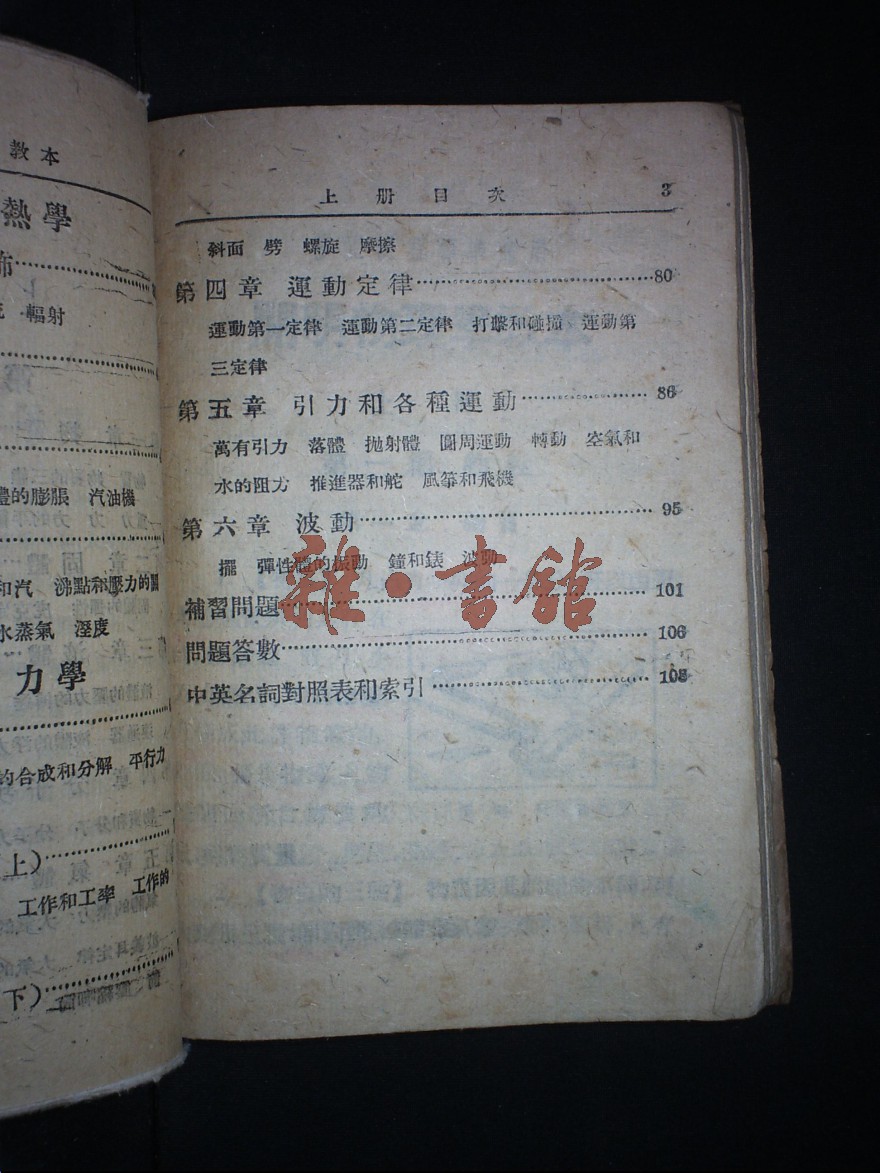 教本
熱學
輻射
的膨脹　汽油機
和汽　沸點和壓力的關
水蒸氣　溼度
力學
的合成和分解　平行力
上)
工作和工率　工作的
下)
上册目次　3
斜面　劈　螺旋　摩擦
第四章　運動定律……80
運動第一定律　運動第二定律　打擊和碰撞　運動第
三定律
第五章　引力和各種運動……86
萬有引力　落體　拋射體　圓周運動　轉動　空氣和
水的阻力　推進器和舵　風箏和飛機
第六章　波動……95
擺　彈性體的振動　鐘和錶　波動
雜·書館
補習問題……101
問題答數……106
中英名詞對照表和索引……108